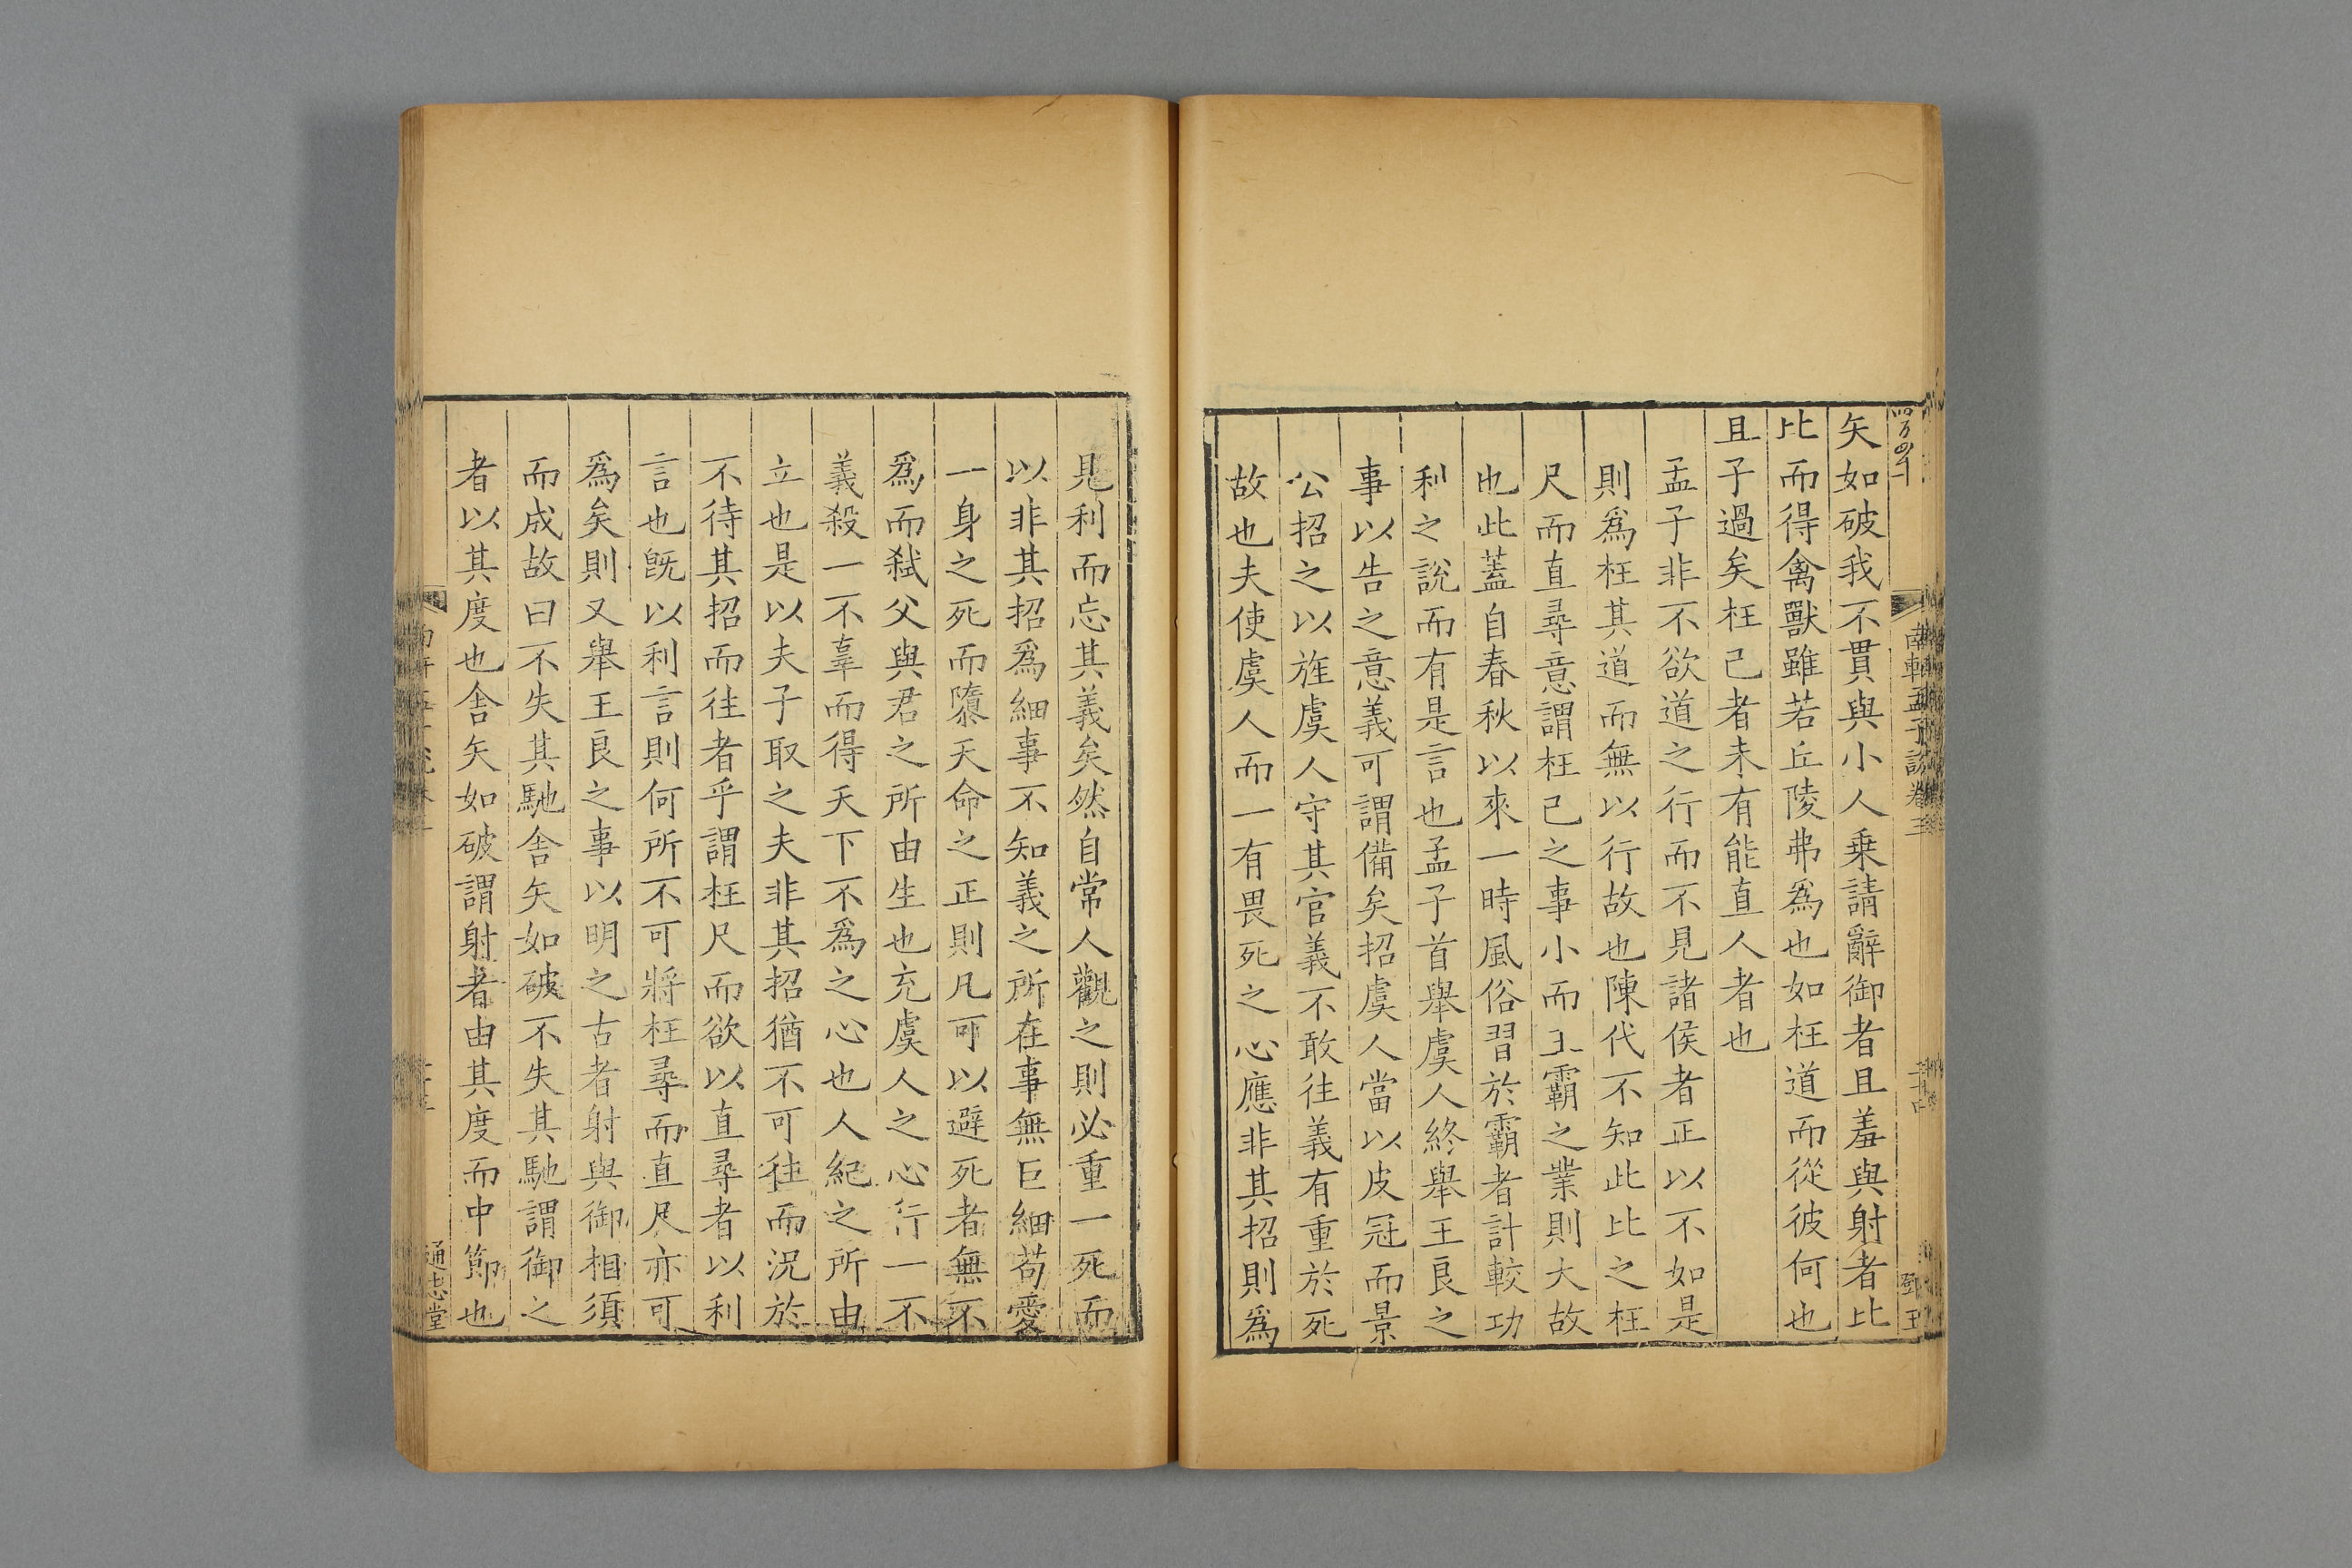 矢如破我不貫與小人乗請辭御者且羞與射者比
比而得禽獸雖若丘陵弗爲也如枉道而從彼何也
且子過矣枉己者未有能直人者也
孟子非不欲道之行而不見諸侯者正以不如是
則爲枉其道而無以行故也陳代不知此比之枉
尺而直尋意謂枉己之事小而王霸之業則大故
也此蓋自春秋以來一時風俗習於霸者計較功
利之說而有是言也孟子首舉虞人終舉王良之
事以告之意義可謂備矣招虞人當以皮冠而景
公招之以旌虞人守其官義不敢往義有重於死
故也夫使虞人而一有畏死之心應非其招則爲
南軒孟子說卷三
見利而忘其義矣然自常人觀之則必重一死而
以非其招爲細事不知義之所在事無巨細苟愛
一身之死而隳天命之正則凡可以避死者無不
爲而弒父與君之所由生也充虞人之心行一不
義殺一不辜而得天下不爲之心也人紀之所由
立也是以夫子取之夫非其招猶不可往而況於
不待其招而往者乎謂枉尺而欲以直尋者以利
言也旣以利言則何所不可將枉尋而直尺亦可
爲矣則又舉王良之事以明之古者射與御相須
而成故曰不失其馳舍矢如破不失其馳謂御之
者以其度也舍矢如破謂射者由其度而中節也
通志堂